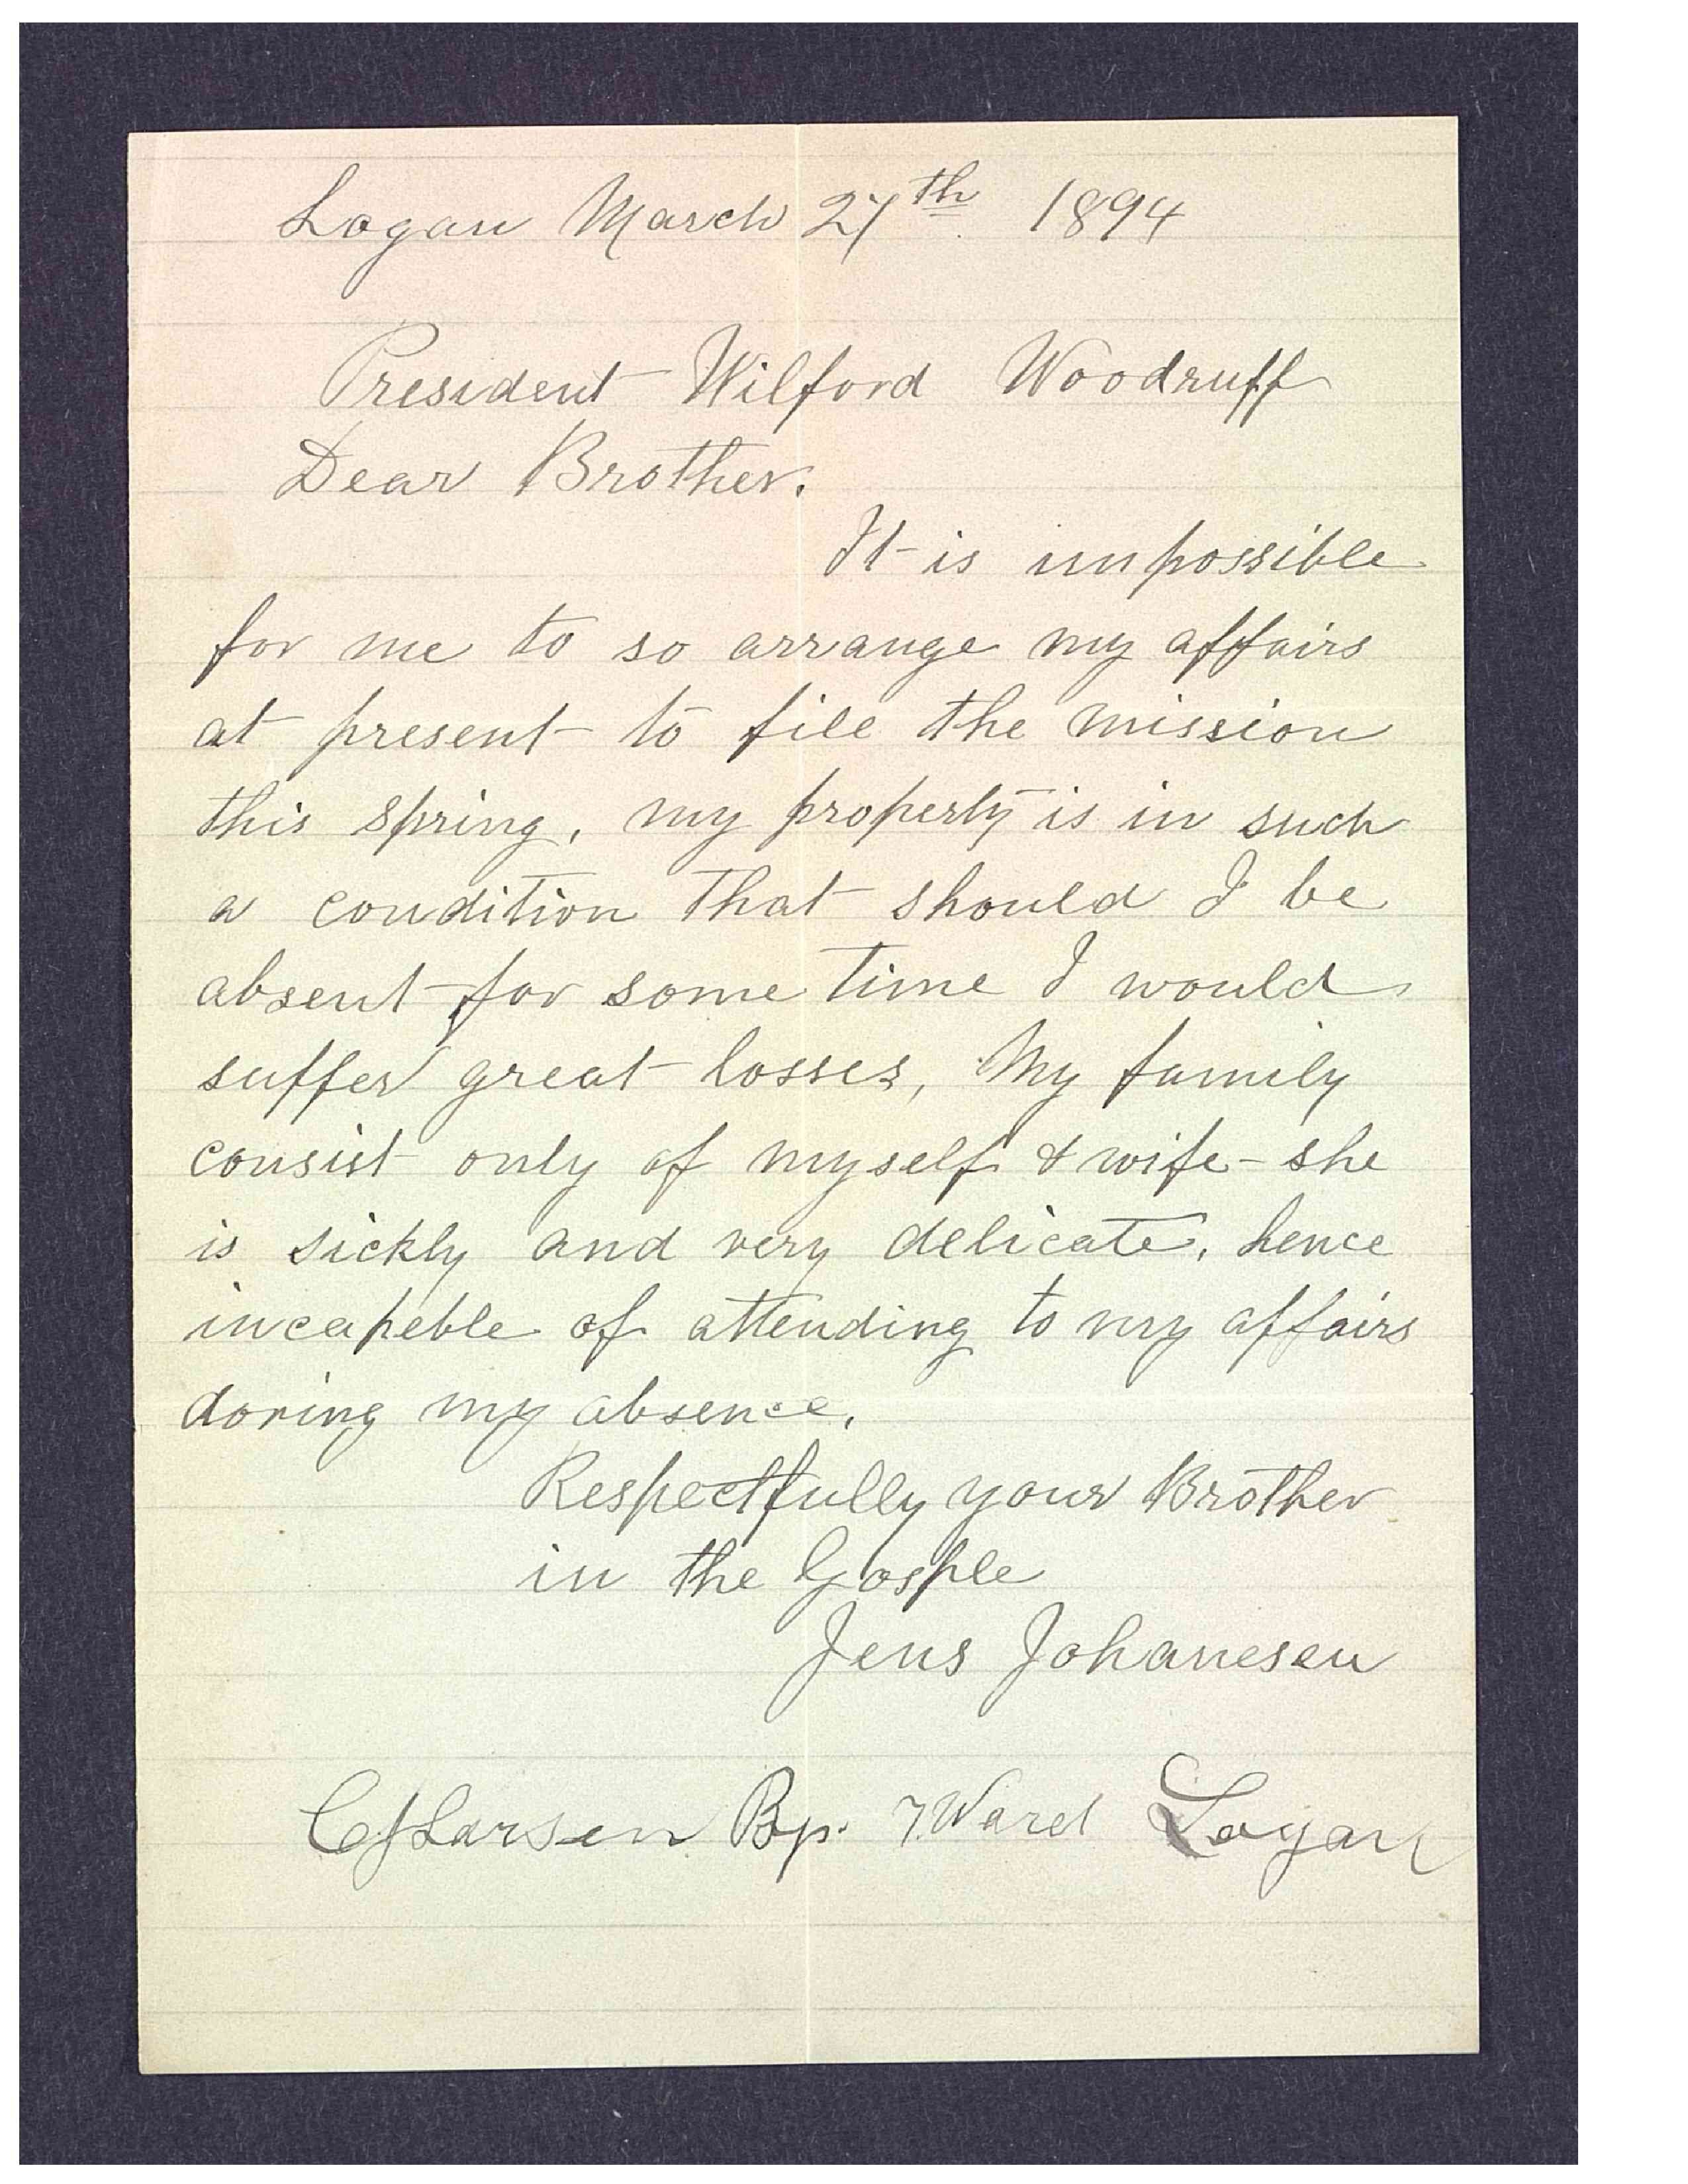 Logan March 27th 1894
President Wilford Woodruff
Dear Brother.
It is impossible
for me to so arrange my affairs
at present to fill the mission
this spring, my property is in such
a condition that should I be
absent for some time I would
suffer great losses, My family
consist only of myself & wife - she
is sickly and very delicate, hence
incapeble of attending to my affairs
doring my absence.
Respectfully your Brother
in the Gosple
Jens Johanesen
CJLarsen Bp. 7.Ward Logan